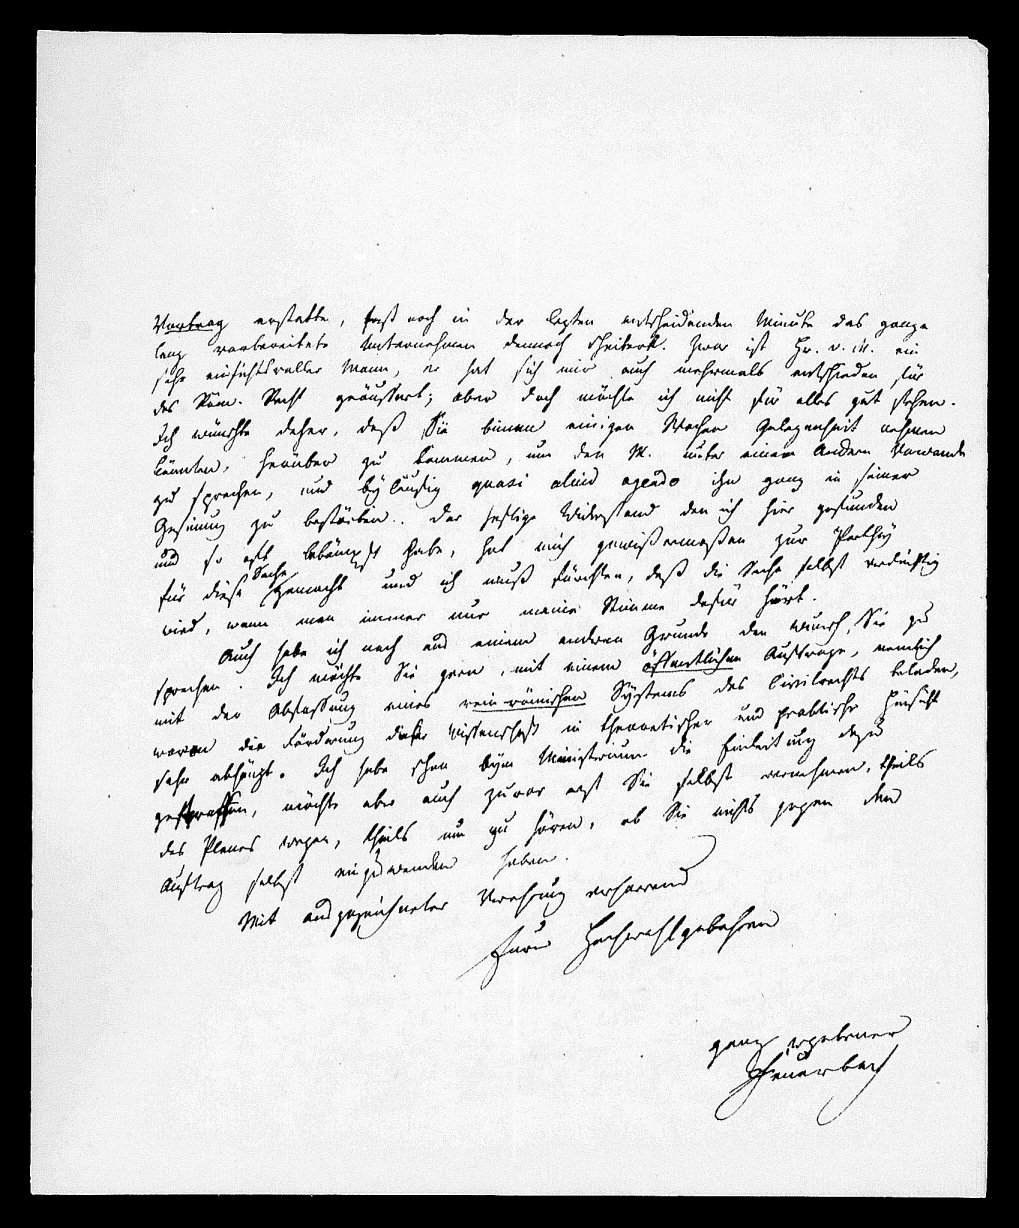 Vortrag erstatte, fast noch in der lezten entscheidenden Minute das ganze
lang vorbereitete Unternehmen dennoch scheitert. Zwar ist Hr. v. M. ein
sehr einsichtsvoller Mann, er hat sich mir auch mehrmals entschieden für
das Röm. Recht geäussert; aber doch möchte ich nicht für alles gut stehen.
Ich wünschte daher, daß Sie binnen einigen Wochen Gelegenheit nehmen
könnten, herüber zu kommen, um den M. unter einem andern Vorwande
zu sprechen, und byläufig quasi aliud agendo ihn ganz in seiner
Gesinnung zu bestärken. Der heftige Widerstand den ich hier gefunden
und so oft bekämpft habe, hat mich gewißermaßen zur Parthey
für diese Sache gemacht und ich muß fürchten, daß die Sache selbst verdächtig
wird, wenn man immer nur meine Stimme dafür hört.
Auch habe ich noch aus einem anderen Grunde den Wunsch, Sie zu
sprechen. Ich möchte Sie gern, mit einem öffentlichen Auftrage, nemlich
mit der Abfassung eines rein-römischen Systems des Civilrechts beladen,
wovon die Förderung dieser Wissenschaft in theoretischer und praktischer Hinsicht
sehr abhängt. Ich habe schon beym Ministerium die Einleitung dazu
getroffen, möchte aber auch zuvor erst Sie selbst vernehmen, theils
des Planes wegen, theils um zu hören, ob Sie nichts gegen den
Auftrag selbst einzuwenden haben.
Mit ausgezeichneter Verehrung verharrend
Euer Hochwohlgebohren
ganz ergebener
Feuerbach